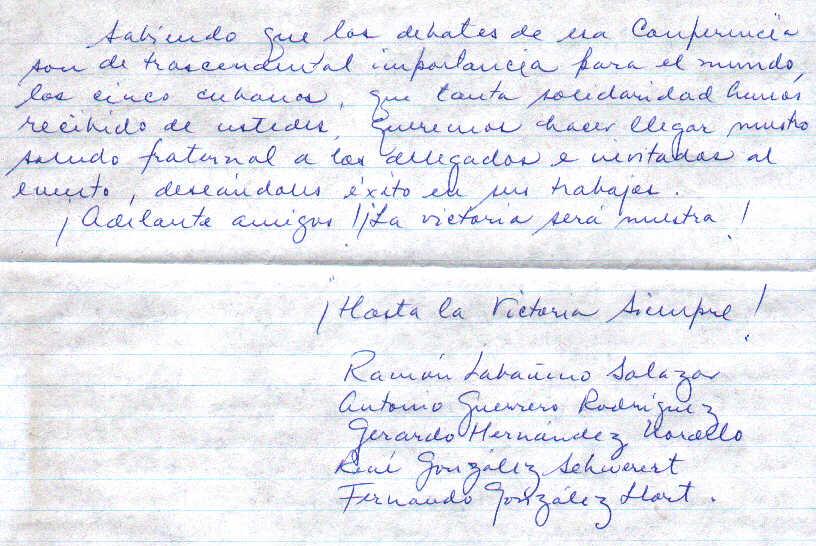 Sabiendo que los debates de esa Conferencia
son de trascendental importancia para el mundo,
los cinco cubanos, que tanta solidaridad hemos
recibido de ustedes, queremos hacer llegar nuestro
saludo fraternal a los delegados e invitados al
evento, deseándoles éxito en sus trabajos.
¡Adelante amigos! ¡La victoria será nuestra!
¡Hasta la Victoria Siempre!
Ramón Labañino Salazar
Antonio Guerrero Rodríguez
Gerardo Hernández Nordelo
René González Sehwerert
Fernando González Llort.